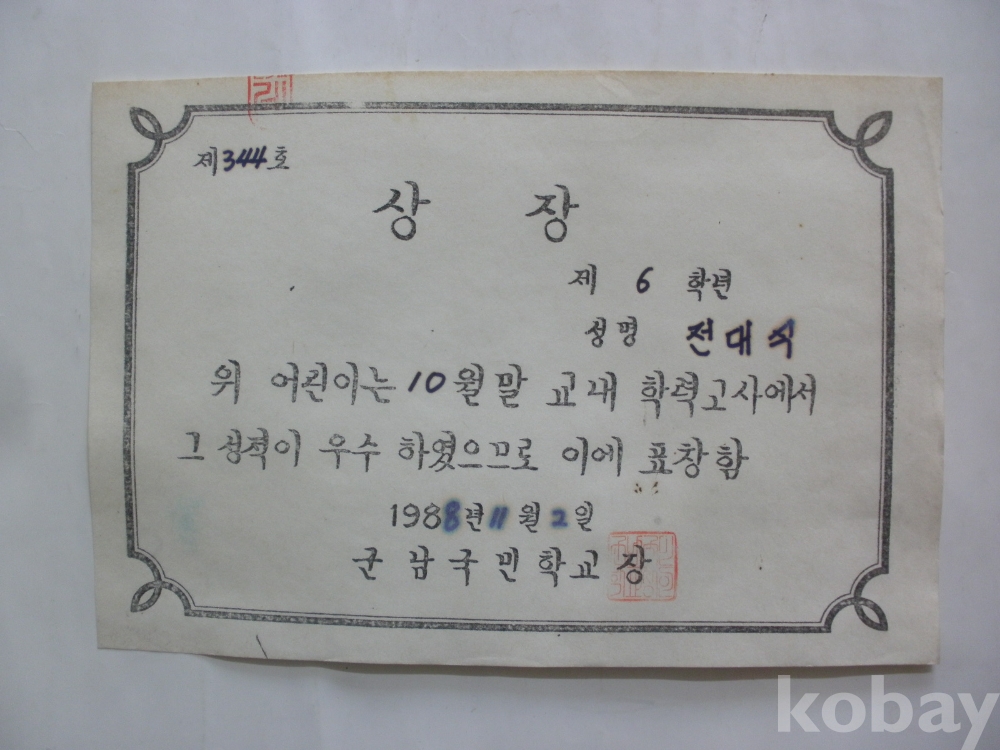 제344호
상 장
제 6 학년
성명 전대식
위 어린이는 10월말 교내 학력고사에서
그 성적이 우수 하였으므로 이에 표창함
1988년 11월 2일
군남국민학교장
kobay